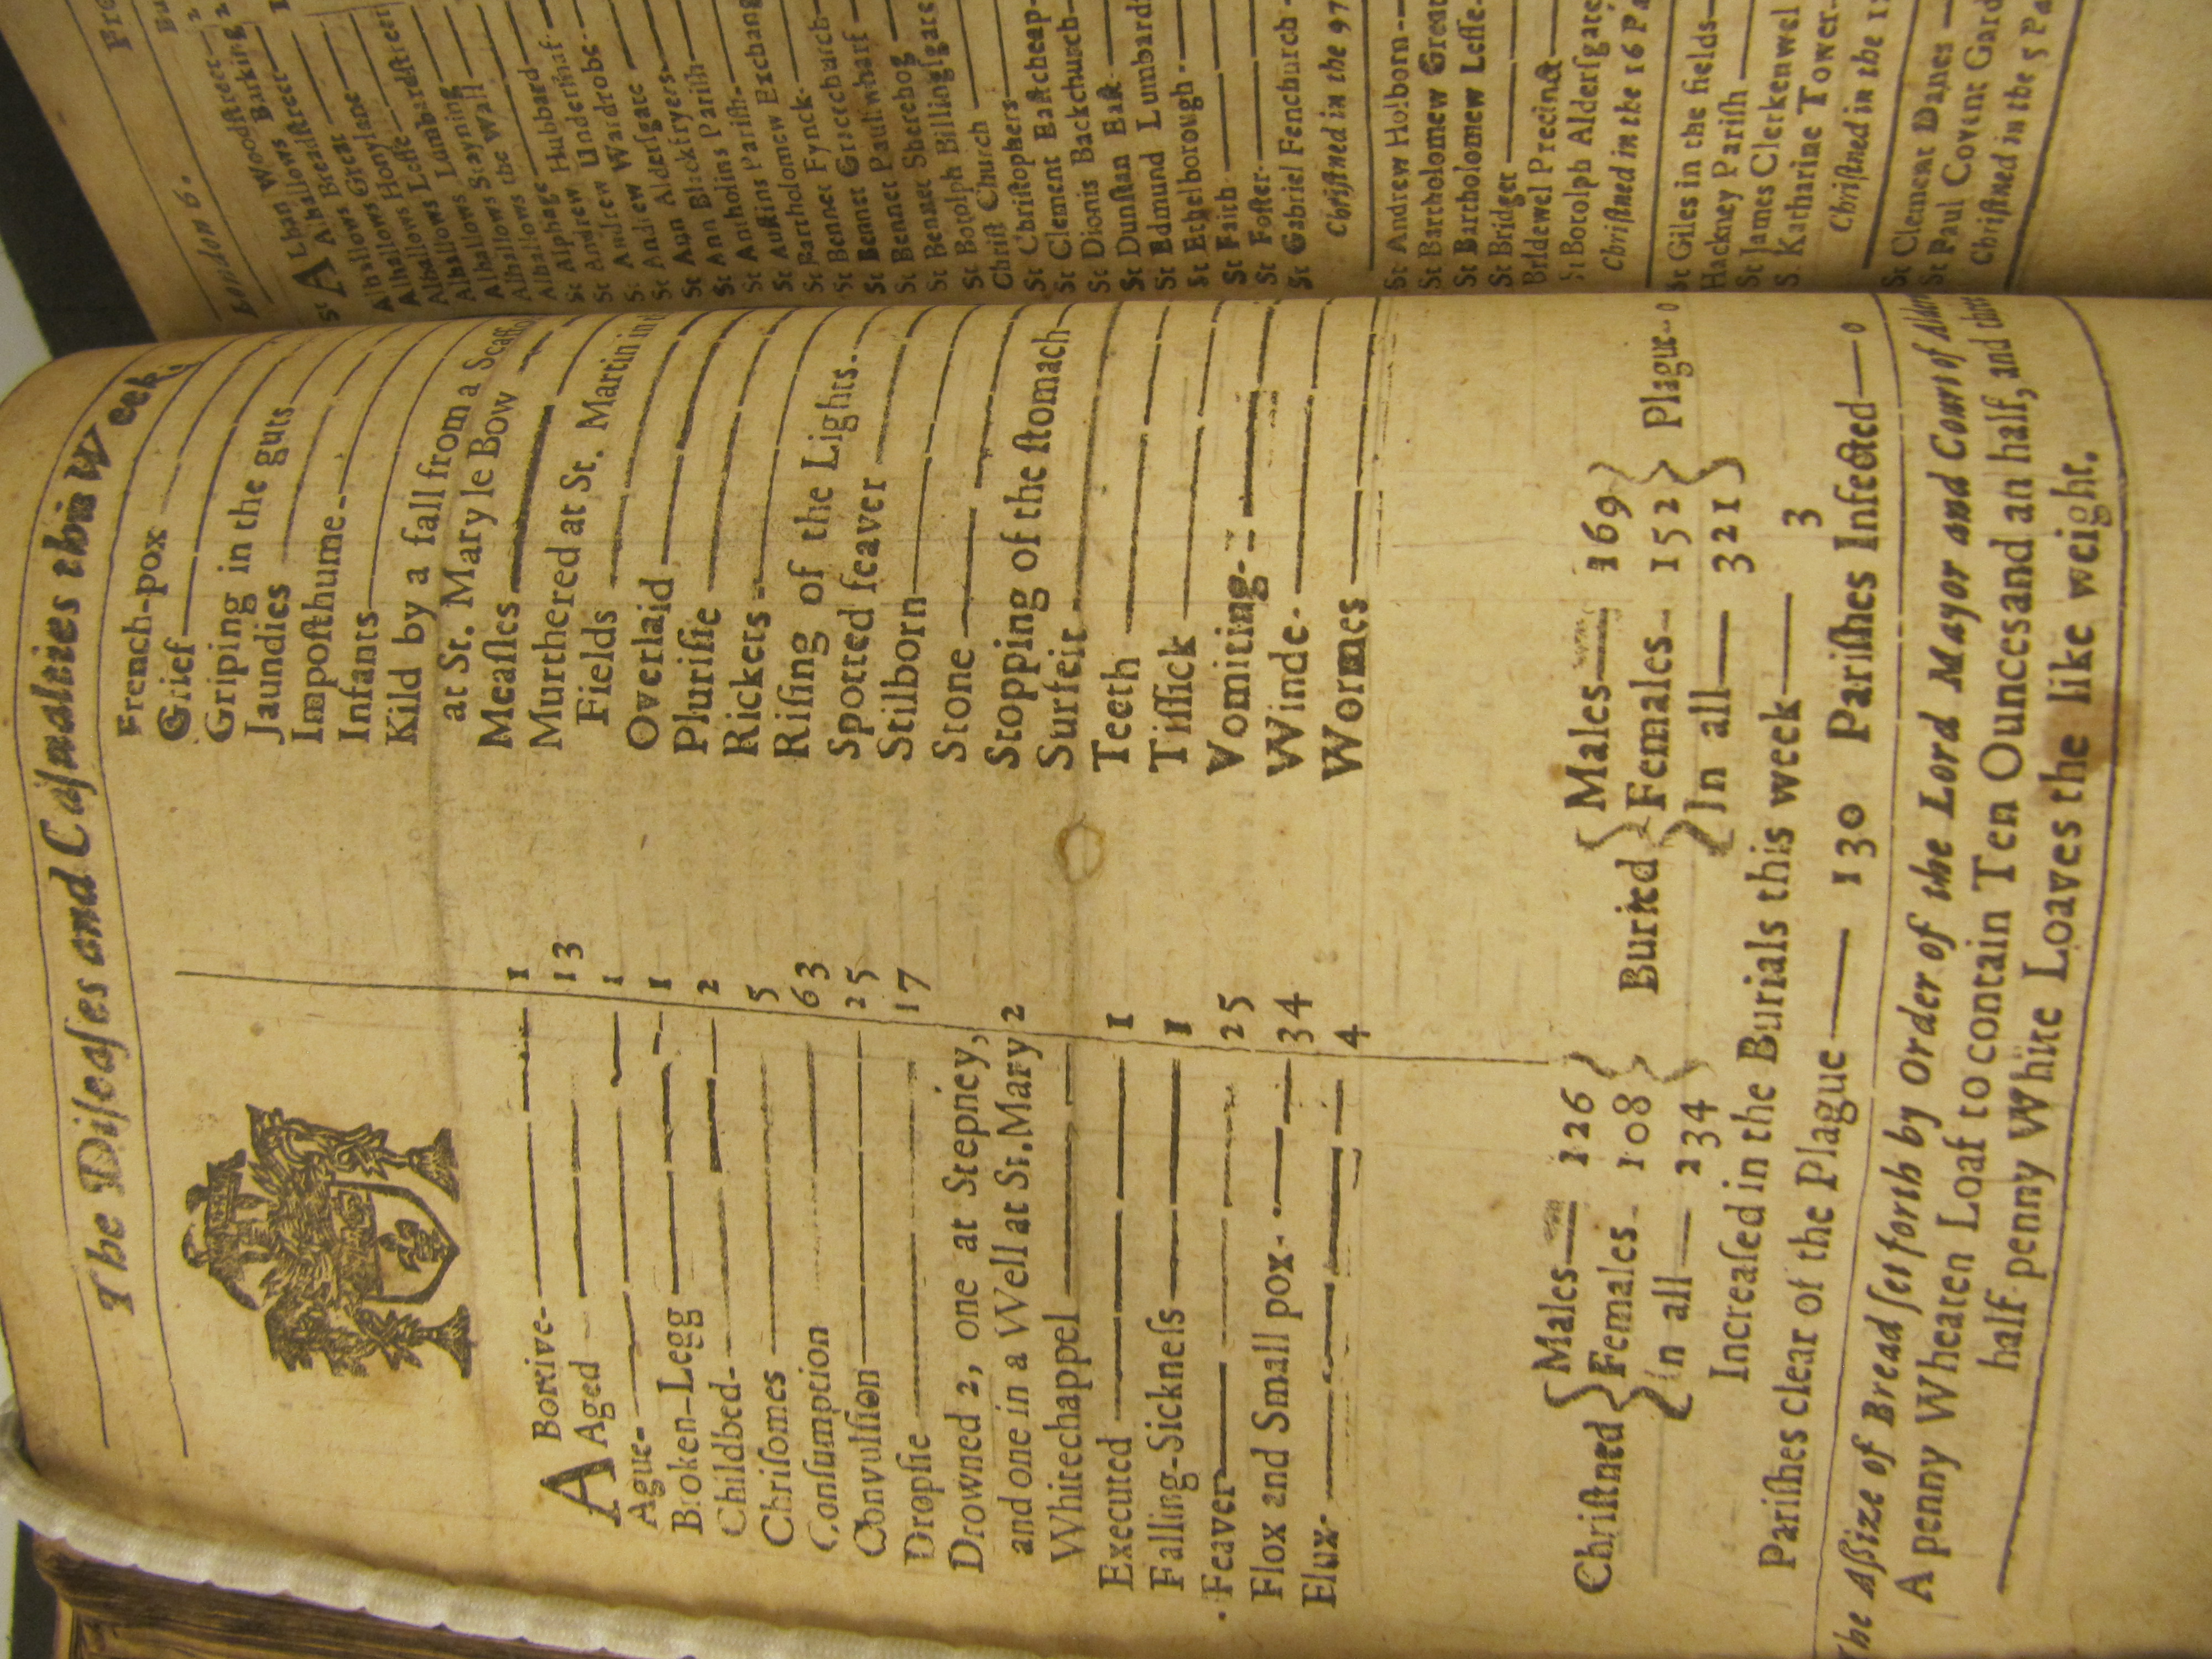 The Diſeaſes and Caſualties this Week.
ABortive- 1
Aged 13
Ague- 1
Broken-Legg 1
Childbed- 2
Chriſomes 5
Conſumption 63
Convulſion 25
Dropſie 17
Drowned 2, one at Stepney,
and one in a Well at St. Mary
Whitechappel 2
Executed 1
Falling-Sickneſs 1
Feaver 25
Flox and Small pox- 34
Flux- 4
French-pox
Grief
Griping in the guts
Jaundies
Impoſthume
Infants
Kild by a fall from a
at St. Mary le Bow
Meaſles
Murthered at St. Martin in
Fields
Overlaid
Pluriſie
Rickets
Riſing of the Lights
Spotted feaver
Stilborn
Stone
Stopping of the ſtomach
Surfeit
Teeth
Tiſſick
Vomiting
Winde
Wormes
Chriſtned
Males 126
Females 108
In all 234
Buried
Males 169
Females 152
In all 321
Plague 0
Increaſed in the Burials this week 3
Pariſhes clear of the Plague 130 Pariſhes Infected 0
The Aſſize of Bread ſet forth by Order of the Lord Mayor and Court of
A penny Wheaten Loaf to contain Ten Ounces and an half, and three
half-penny White Loaves the like weight.
London 6.
St ALban Woodſtreet
Alhallows Barking
Alhallows Breadſtreet
Alhallows Great
Alhallows Honylane
Alhallows Leſſe
Alhallows Lumbardſtreet
Alhallows Stayning
Alhallows the Wall
Alphage
St Andrew Hubbard
St Andrew Underſhaf
St Andrew Wardrobe
St Ann Alderſgate
St Ann Blackfryers
St Antholins Pariſh
St Auſtins Pariſh
St Bartholomew Exchang
St Bennet Fynck
St Bennet Gracechurch
St Bennet Paulſwharf
St Bennet Sherehog
St Botolph Billingſgate
Chriſt Church
St Chriſtophers
St Clement Eaſtcheap
St Dionis Backchurch
St Dunſtan Eaſt
St Edmund Lumbard
St Ethelborough
St Faith
St Foſter
St Gabriel Fenchurch
Chriſtned in the 97
St Andrew Holborn
St Bartholomew Great
St Bartholomew Leſſe
St Bridget
Bridewel Precinct
St Botolph Alderſgate
Chriſtned in the 16 Pa
St Giles in the fields
Hackney Pariſh
St James Clerkenwel
S. Katharine Tower
Chriſtned in the
St Clement Danes
St Paul Covent Gard
Chriſtned in the 5 Pa